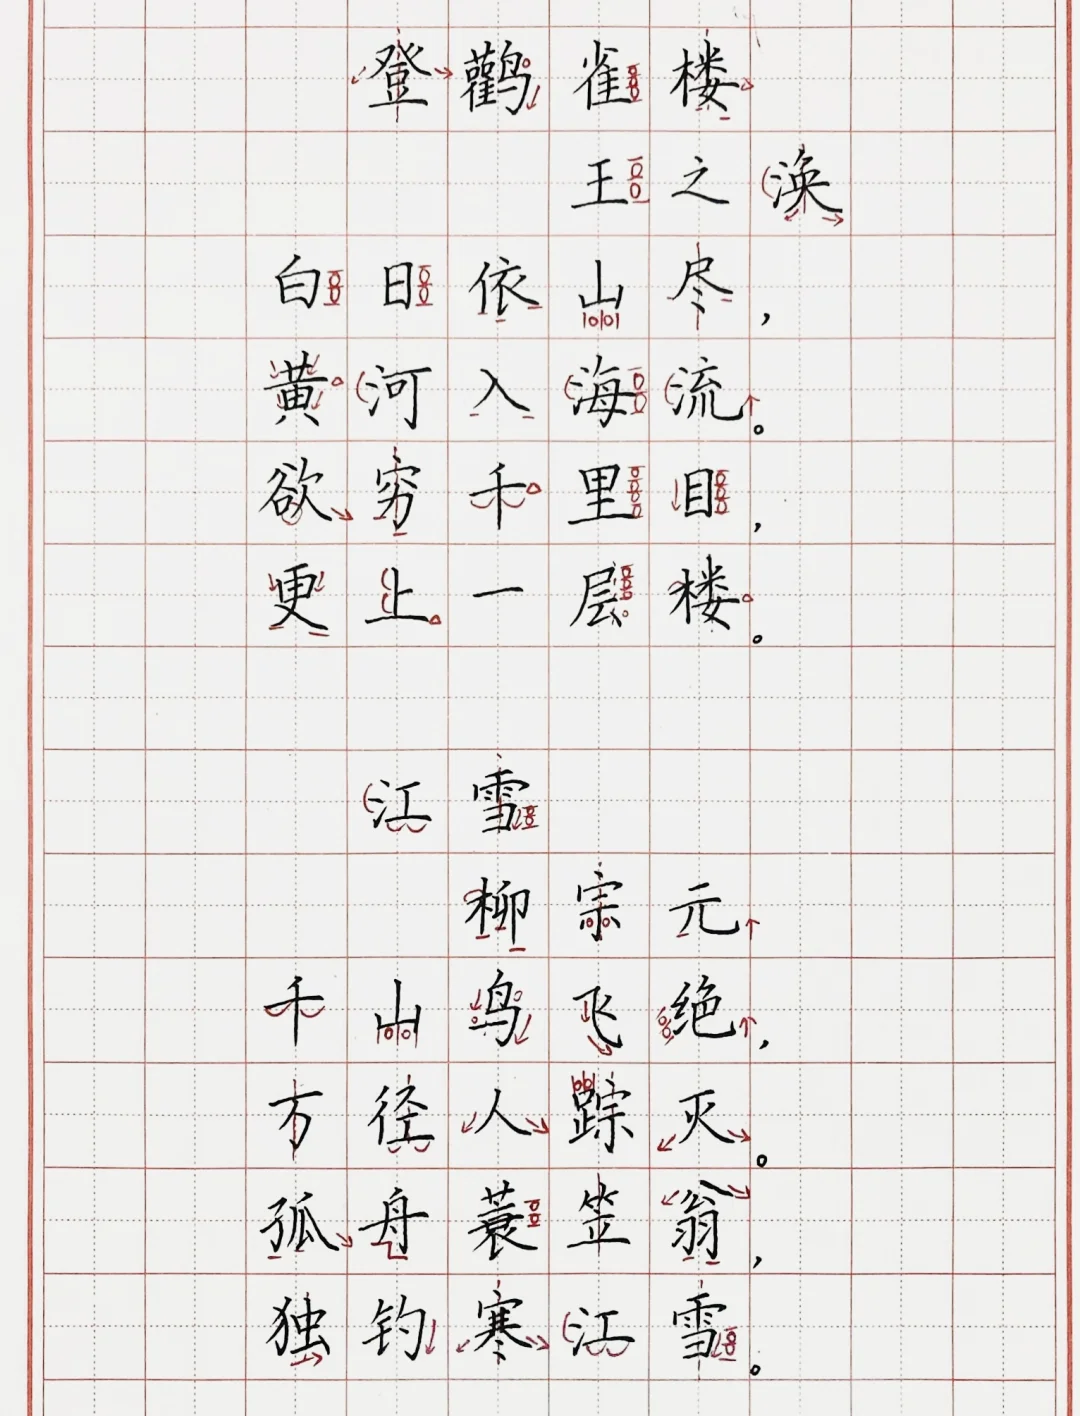 登鹳雀楼
王之涣
白日依山尽，
黄河入海流。
欲穷千里目，
更上一层楼。
江雪
柳宗元
千山鸟飞绝，
万径人踪灭。
孤舟蓑笠翁，
独钓寒江雪。